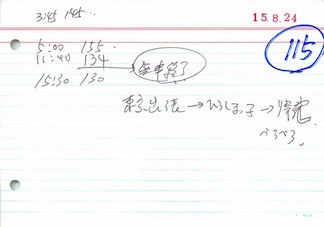 3:45 145..
15.8.24
115
5:00 135.
11:40 134
無事終了
15:30 130
東京出張→ひろしまっ子→帰宅
べろべろ.